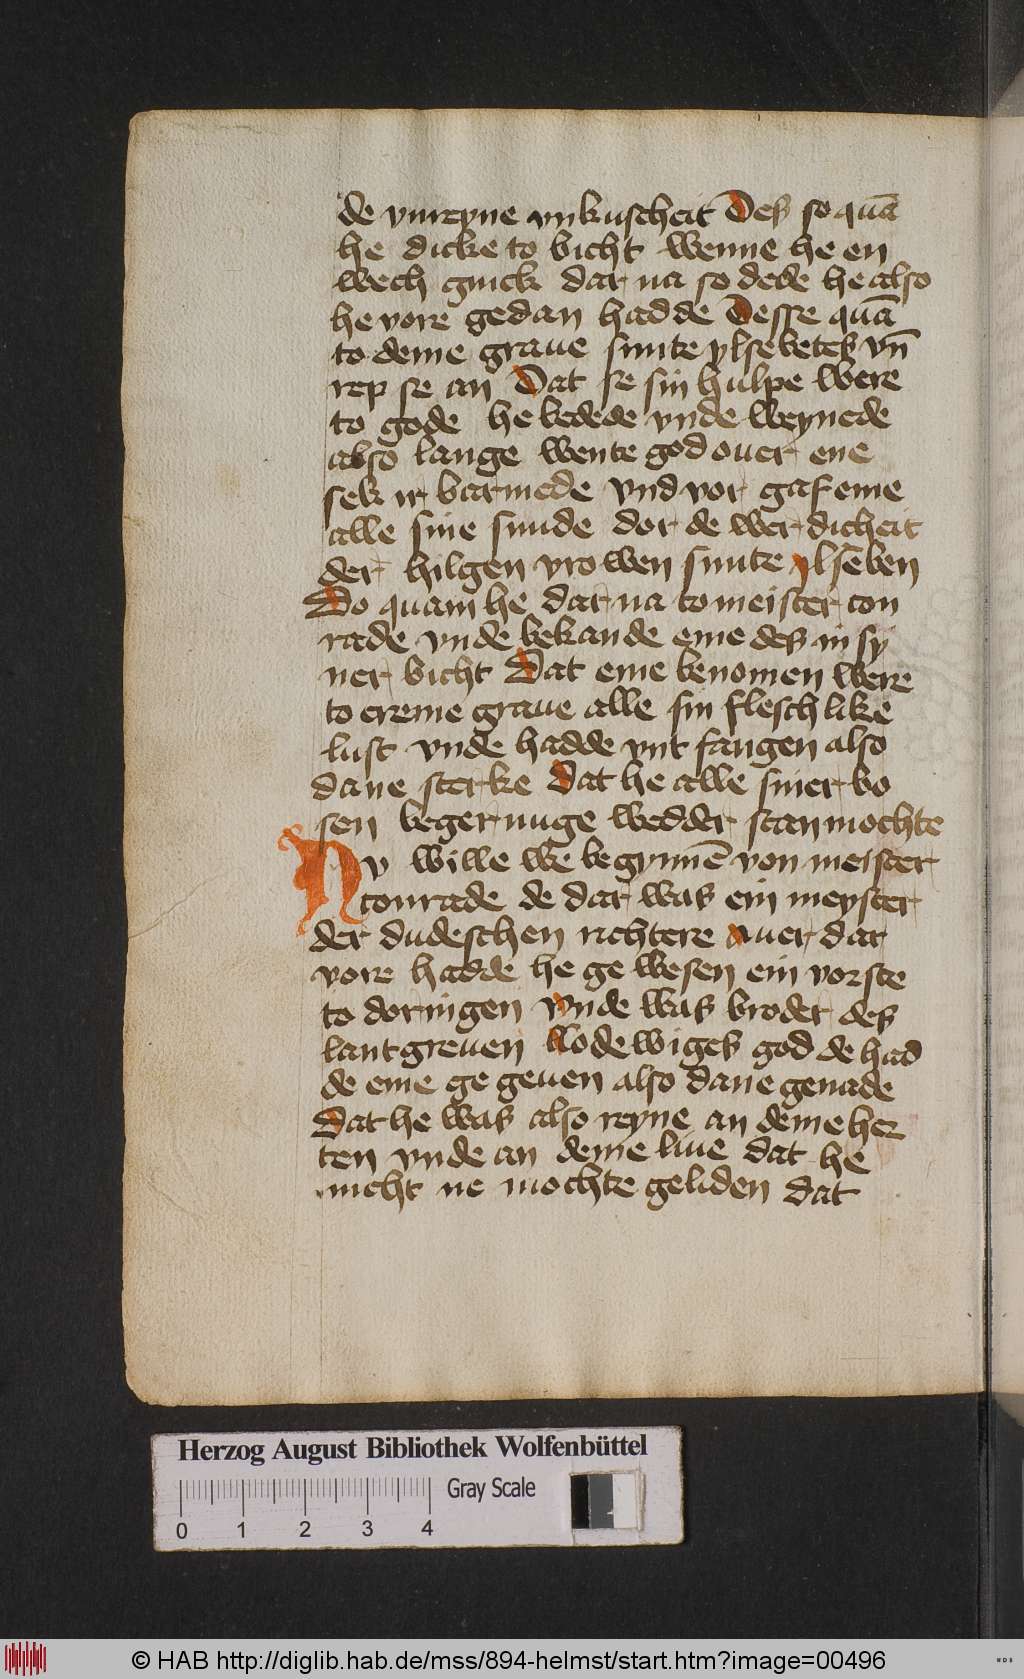 de vnreyne vnkuscheit Des so quā
he dicke to bicht wenne he en
wech ginck dar na so dede he also
he vore gedan hadde Desse quā
to deme graue sunte ylsebetes vn̄
rep se an Dat se sin hulpe were
to gode he bedede vnde weynede
also lange wente god ouer ene
sek ir barmede vnd vor gaf eme
alle sine sunde dor de wer dicheit
der hilgen vrowen sunte ylseben
Do quam he dar na to meister con
rade vnde bekande eme des in sy
ner bicht Dat eme benomen were
to creme graue alle sin flesch like
lust vnde hadde vnt fangen also
dane sterke Dat he alle siner bo
sen begerunge wedder stan mochte
Nv wille we begynnē von meister
conrade de dar was ein meyster
der dudeschen richtere Auer dar
vore hadde he ge wesen ein vorste
to doringen Vnde was broder des
lantgreuen Lodewiges god de had
de eme ge geuen also dane genade
Dat he was also reyne an deme her
ten vnde an deme liue dat he
nicht ne mochte geliden dat
Herzog August Bibliothek Wolfenbüttel
Gray Scale
0 1 2 3 4
© HAB http://diglib.hab.de/mss/894-helmst/start.htm?image=00496